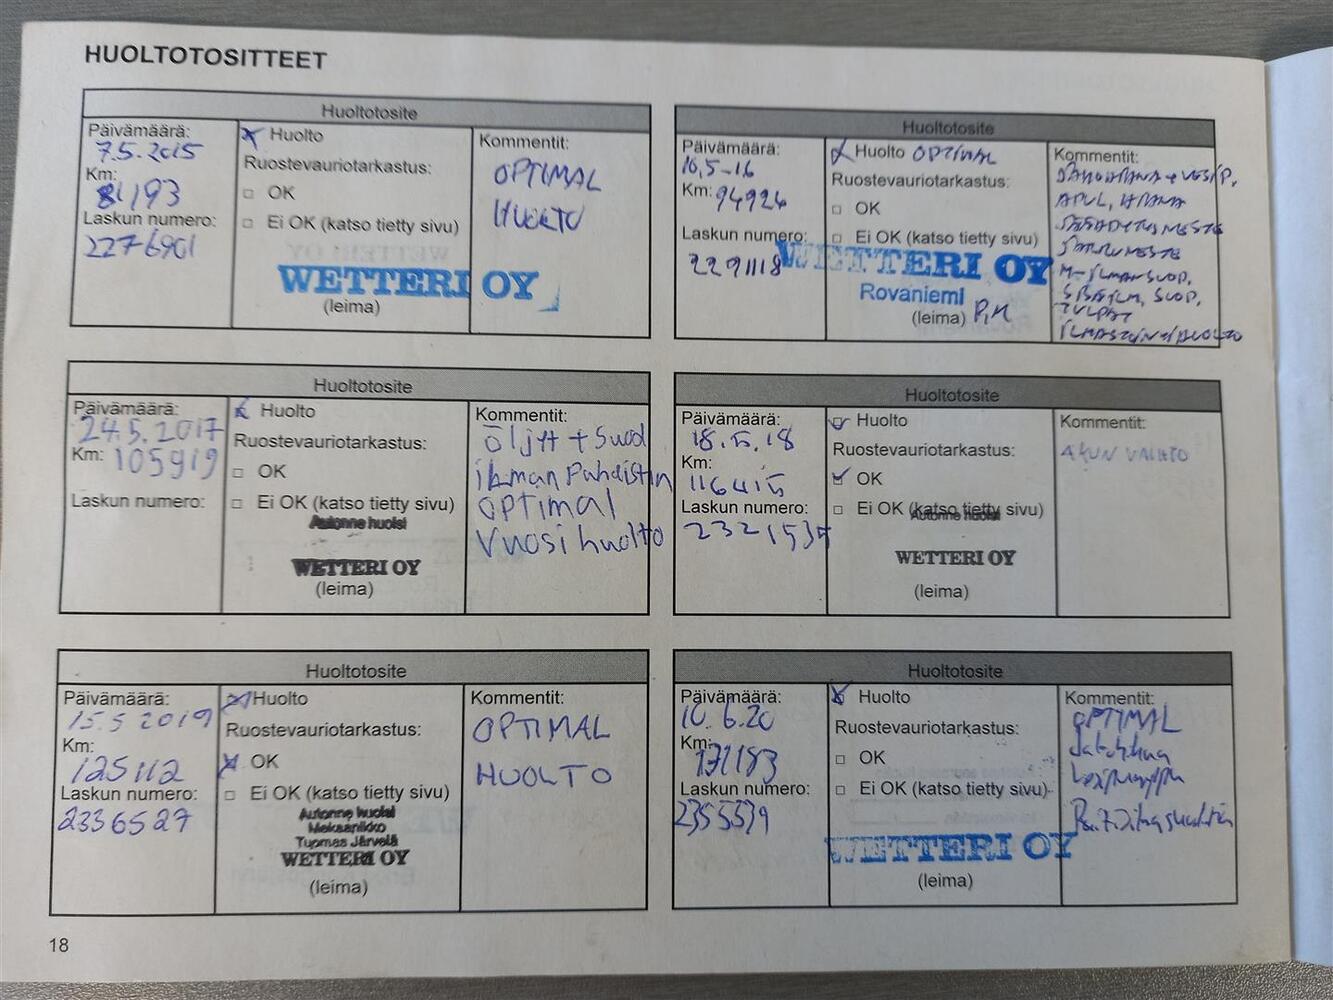 HUOLTOTOSITTEET
Huoltotosite
Päivämäärä:
7.5.2015
Km:
81193
Laskun numero:
2276901
Huolto
Ruostevauriotarkastus:
OK
Ei OK (katso tietty sivu)
WETTERI OY
(leima)
Kommentit:
OPTIMAL
HUOLTO
Huoltotosite
Päivämäärä:
16.5-16
Km: 94924
Laskun numero:
2291118
Huolto OPTIMAL
Ruostevauriotarkastus:
OK
Ei OK (katso tietty sivu)
WETTERI OY
Rovaniemi
(leima)
Kommentit:
APUL. HIHNA
JARRUNESTE
TULPAT
Huoltotosite
Päivämäärä:
24.5.2017
Km: 105919
Laskun numero:
Huolto
Ruostevauriotarkastus:
OK
Ei OK (katso tietty sivu)
Autonne huolsi
WETTERI OY
(leima)
Kommentit:
öljyt + Suod
ilman Puhdistin
OPTimal
Vuosihuolto
Huoltotosite
Päivämäärä:
18.5.18
Km:
116415
Laskun numero:
2321537
Huolto
Ruostevauriotarkastus:
OK
Ei OK (katso tietty sivu)
Autonne huolsi
WETTERI OY
(leima)
Kommentit:
AKUN VAIHTO
Huoltotosite
Päivämäärä:
15.5 2019
Km:
125112
Laskun numero:
2336527
Huolto
Ruostevauriotarkastus:
OK
Ei OK (katso tietty sivu)
Autonne huolsi
Mekaanikko
Tuomas Järvelä
WETTERI OY
(leima)
Kommentit:
OPTIMAL
HUOLTO
Huoltotosite
Päivämäärä:
10.6.20
Km:
131183
Laskun numero:
2355539
Huolto
Ruostevauriotarkastus:
OK
Ei OK (katso tietty sivu)
WETTERI OY
(leima)
Kommentit:
OPTIMAL
Jakohihna
Vesipumppu
18